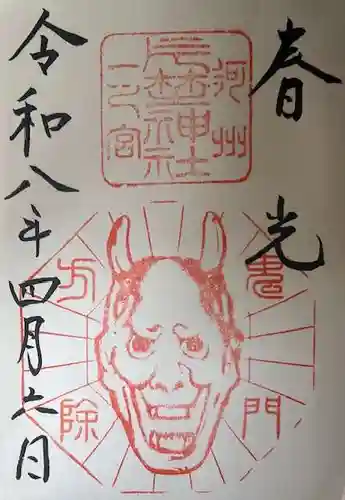 春光
河州
片埜神社
一之宮
鬼門
方除
令和八年四月 日